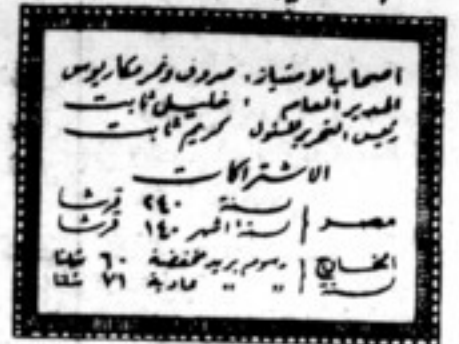 اصحاب الامتياز: صروف ونمر ومكاريوس
المدير العام : خليل ثابت
رئيس التحرير المسئول كريم ثابت
الاشتراكات
مصر | سنة ٢٤٠ قرشا
ستة اشهر ١٤٠ قرشا
الخارج سنة | رسوم بريد مخفضة ٦٠ شلنا
" " عادية ٧١ شلنا